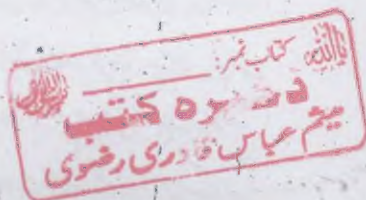 یااللہ کتاب نمبر:
ذخیرہ کتب
میثم عباس قادری رضوی